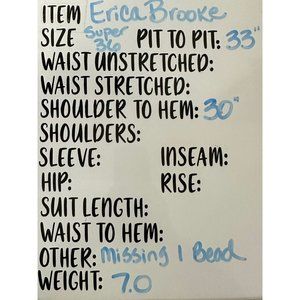 ITEM Erica Brooke
SIZE Super 36 PIT TO PIT: 33"
WAIST UNSTRETCHED:
WAIST STRETCHED:
SHOULDER TO HEM: 30"
SHOULDERS:
SLEEVE: INSEAM:
HIP: RISE:
SUIT LENGTH:
WAIST TO HEM:
OTHER: Missing 1 Bead
WEIGHT: 7.0